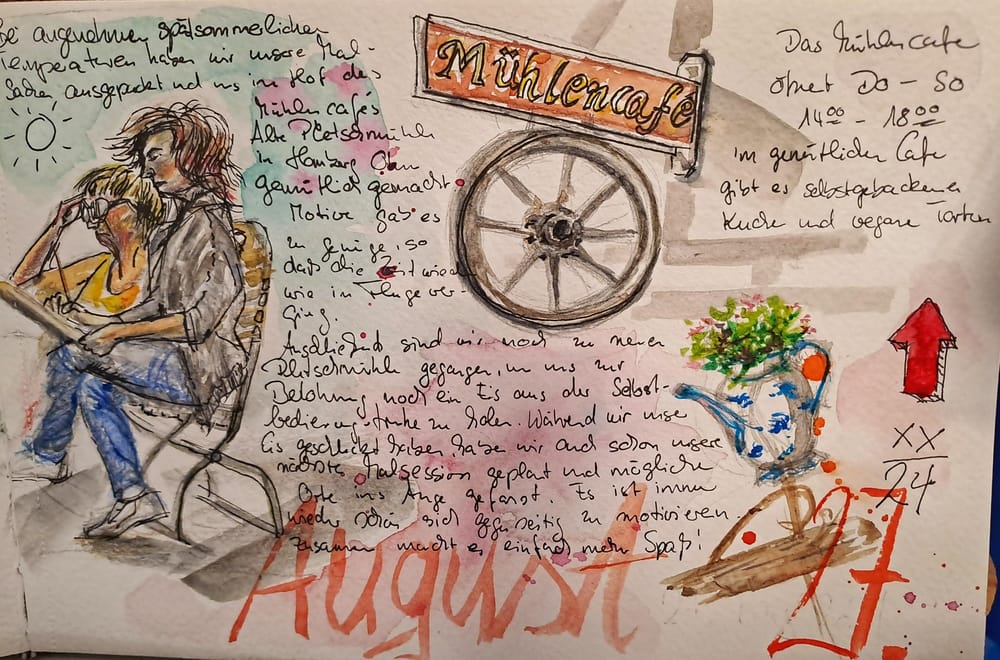 Bei angenehmen spätsommerlichen
Temperaturen haben wir unsere Mal-
Sachen ausgepackt und uns im Hof des
Mühlencafés
Alte Pletschmühle
in
gemütlich gemacht.
Motive gab es
zu genüge, so
daß die Zeit wieder
wie im Fluge ver-
ging.
Anschließend sind wir noch zu neuen
Pletschmühle gegangen, um uns zur
Belohnung noch ein Eis aus der Selbst-
bedienungstruhe zu holen. Während wir unse
Eis geschleckt haben, habe wir auch schon unsere
nächste Malsession geplant und mögliche
Orte ins Auge gefasst. Es ist immer
wieder schön sich gegenseitig zu motivieren.
Zusammen macht es einfach mehr Spaß!
Mühlencafé
Das Mühlencafe
öfnet DO - SO
14⁰⁰ - 18⁰⁰
im gemütlichen Cafe
gibt es selbstgebackenen
Kuche und vegane Torten
XX
24
August
27.